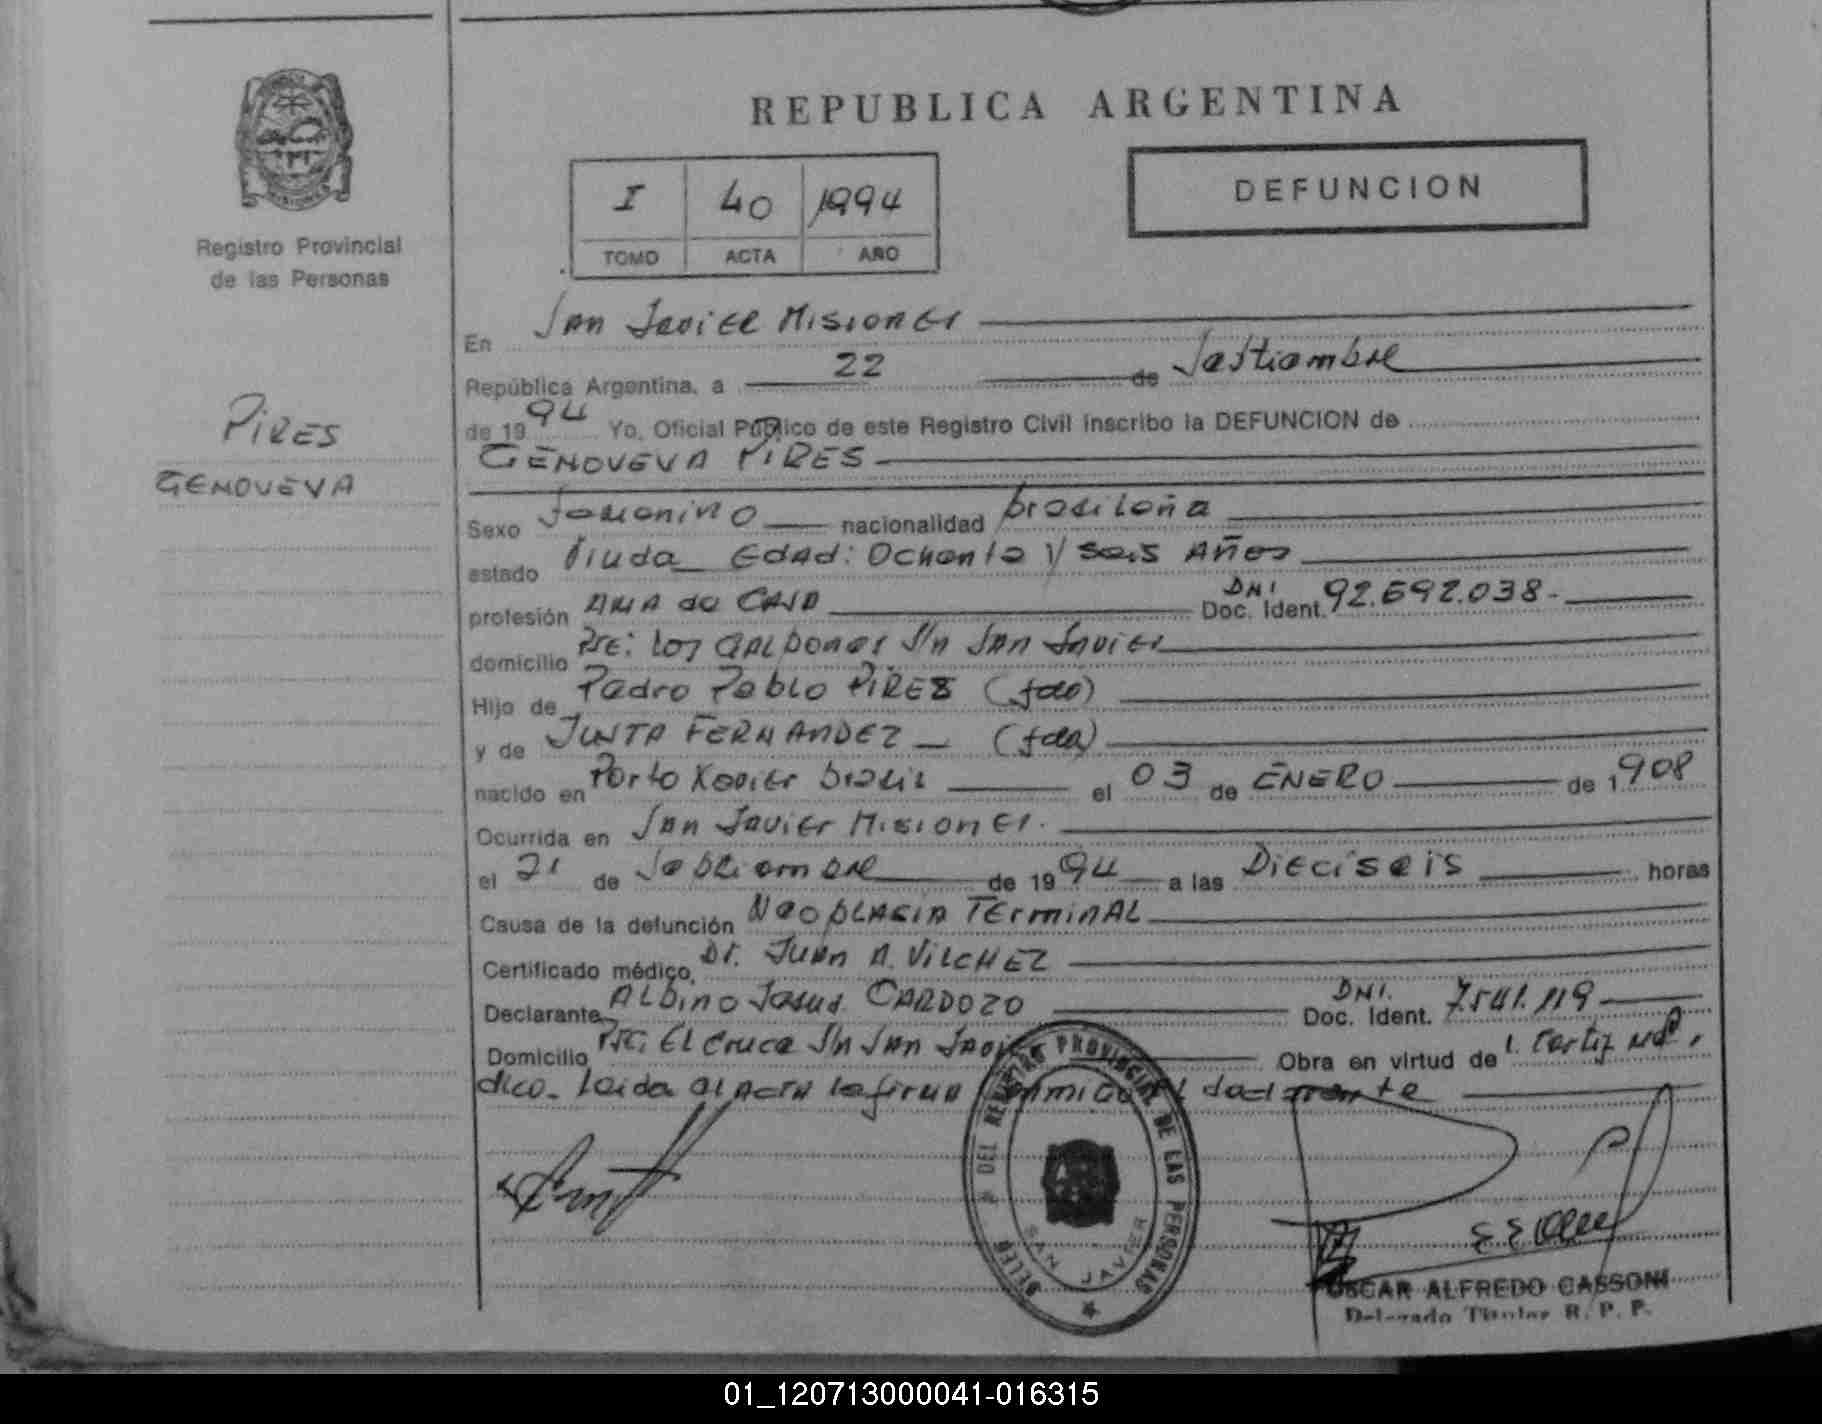 REPUBLICA ARGENTINA
I 40 1994
TOMO ACTA AÑO
DEFUNCION
Registro Provincial
de las Personas
PIRES
GENOVEVA
En San Javier Misiones
República Argentina, a 22 de Septiembre
de 1994 Yo, Oficial Público de este Registro Civil inscribo la DEFUNCION de
GENOVEVA PIRES
Sexo Femenino nacionalidad brasileña
estado Viuda Edad: Ochenta y seis Años
profesión Ama de Casa DNI Doc. Ident. 92.692.038.-
domicilio Pje: Los Galpones S/n San Javier
Hijo de Pedro Pablo PIRES (fdo)
y de JUSTA FERNANDEZ (fda)
nacido en Porto Xavier Brasil el 03 de ENERO de 1908
Ocurrida en San Javier Misiones.
el 21 de Septiembre de 1994 a las Dieciseis horas
Causa de la defunción Neoplasia Terminal
Certificado médico, Dr. Juan A. VILCHEZ
Declarante Albino Jesus CARDOZO DNI. Doc. Ident. 7.541.119
Domicilio Pje: El Cruce S/n San Javier Obra en virtud de 1. Certif. mé
dico. Leida el acta la firma conmigo el declarante
DEL REGISTRO PROVINCIAL DE LAS PERSONAS
SAN JAVIER
OSCAR ALFREDO CASSONI
Delegado Titular R. P. P.
01_120713000041-016315